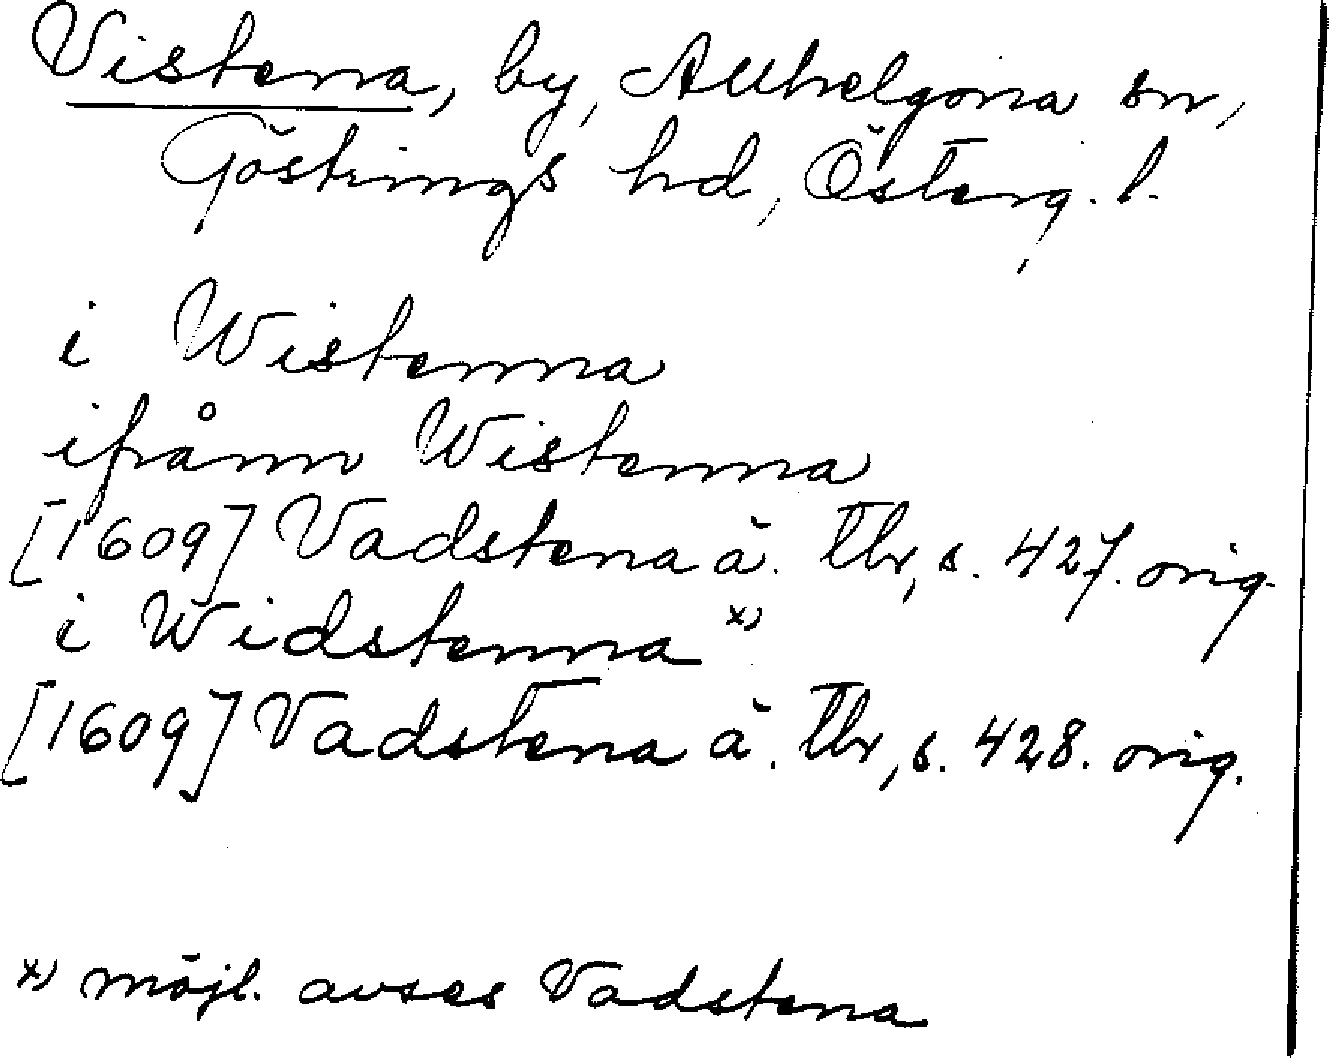 Vistena, by, Allhelgona sn,
Göstrings hd, Österg. l.
i Wistenna
ifrånn Wistenna
[1609] Vadstena ä. Tbr, s. 427. orig.
i Widstenna x)
[1609] Vadstena ä. Tbr, s. 428. orig.
x) möjl. avses Vadstena